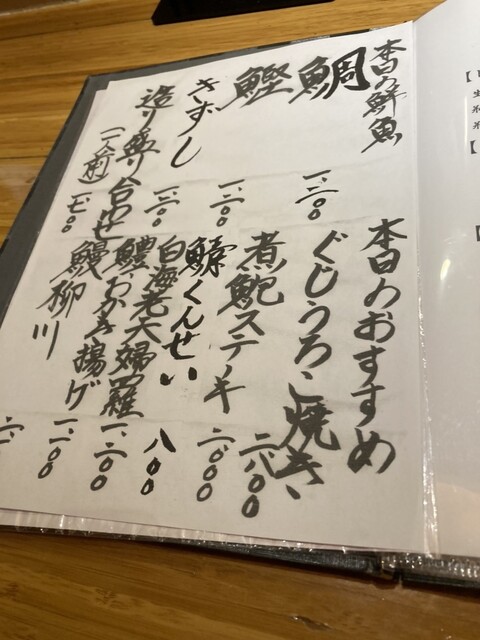 本日の鮮魚
鯛 一、二〇〇
鰹 一、二〇〇
きずし 一、二〇〇
造り盛り合わせ
(一人前) 一、七〇〇
本日のおすすめ
ぐじうろこ焼き 二、八〇〇
煮鮑ステーキ 二、〇〇〇
くんせい 八〇〇
白海老天婦羅 一、二〇〇
鱧おかき揚げ 一、二〇〇
鰻柳川